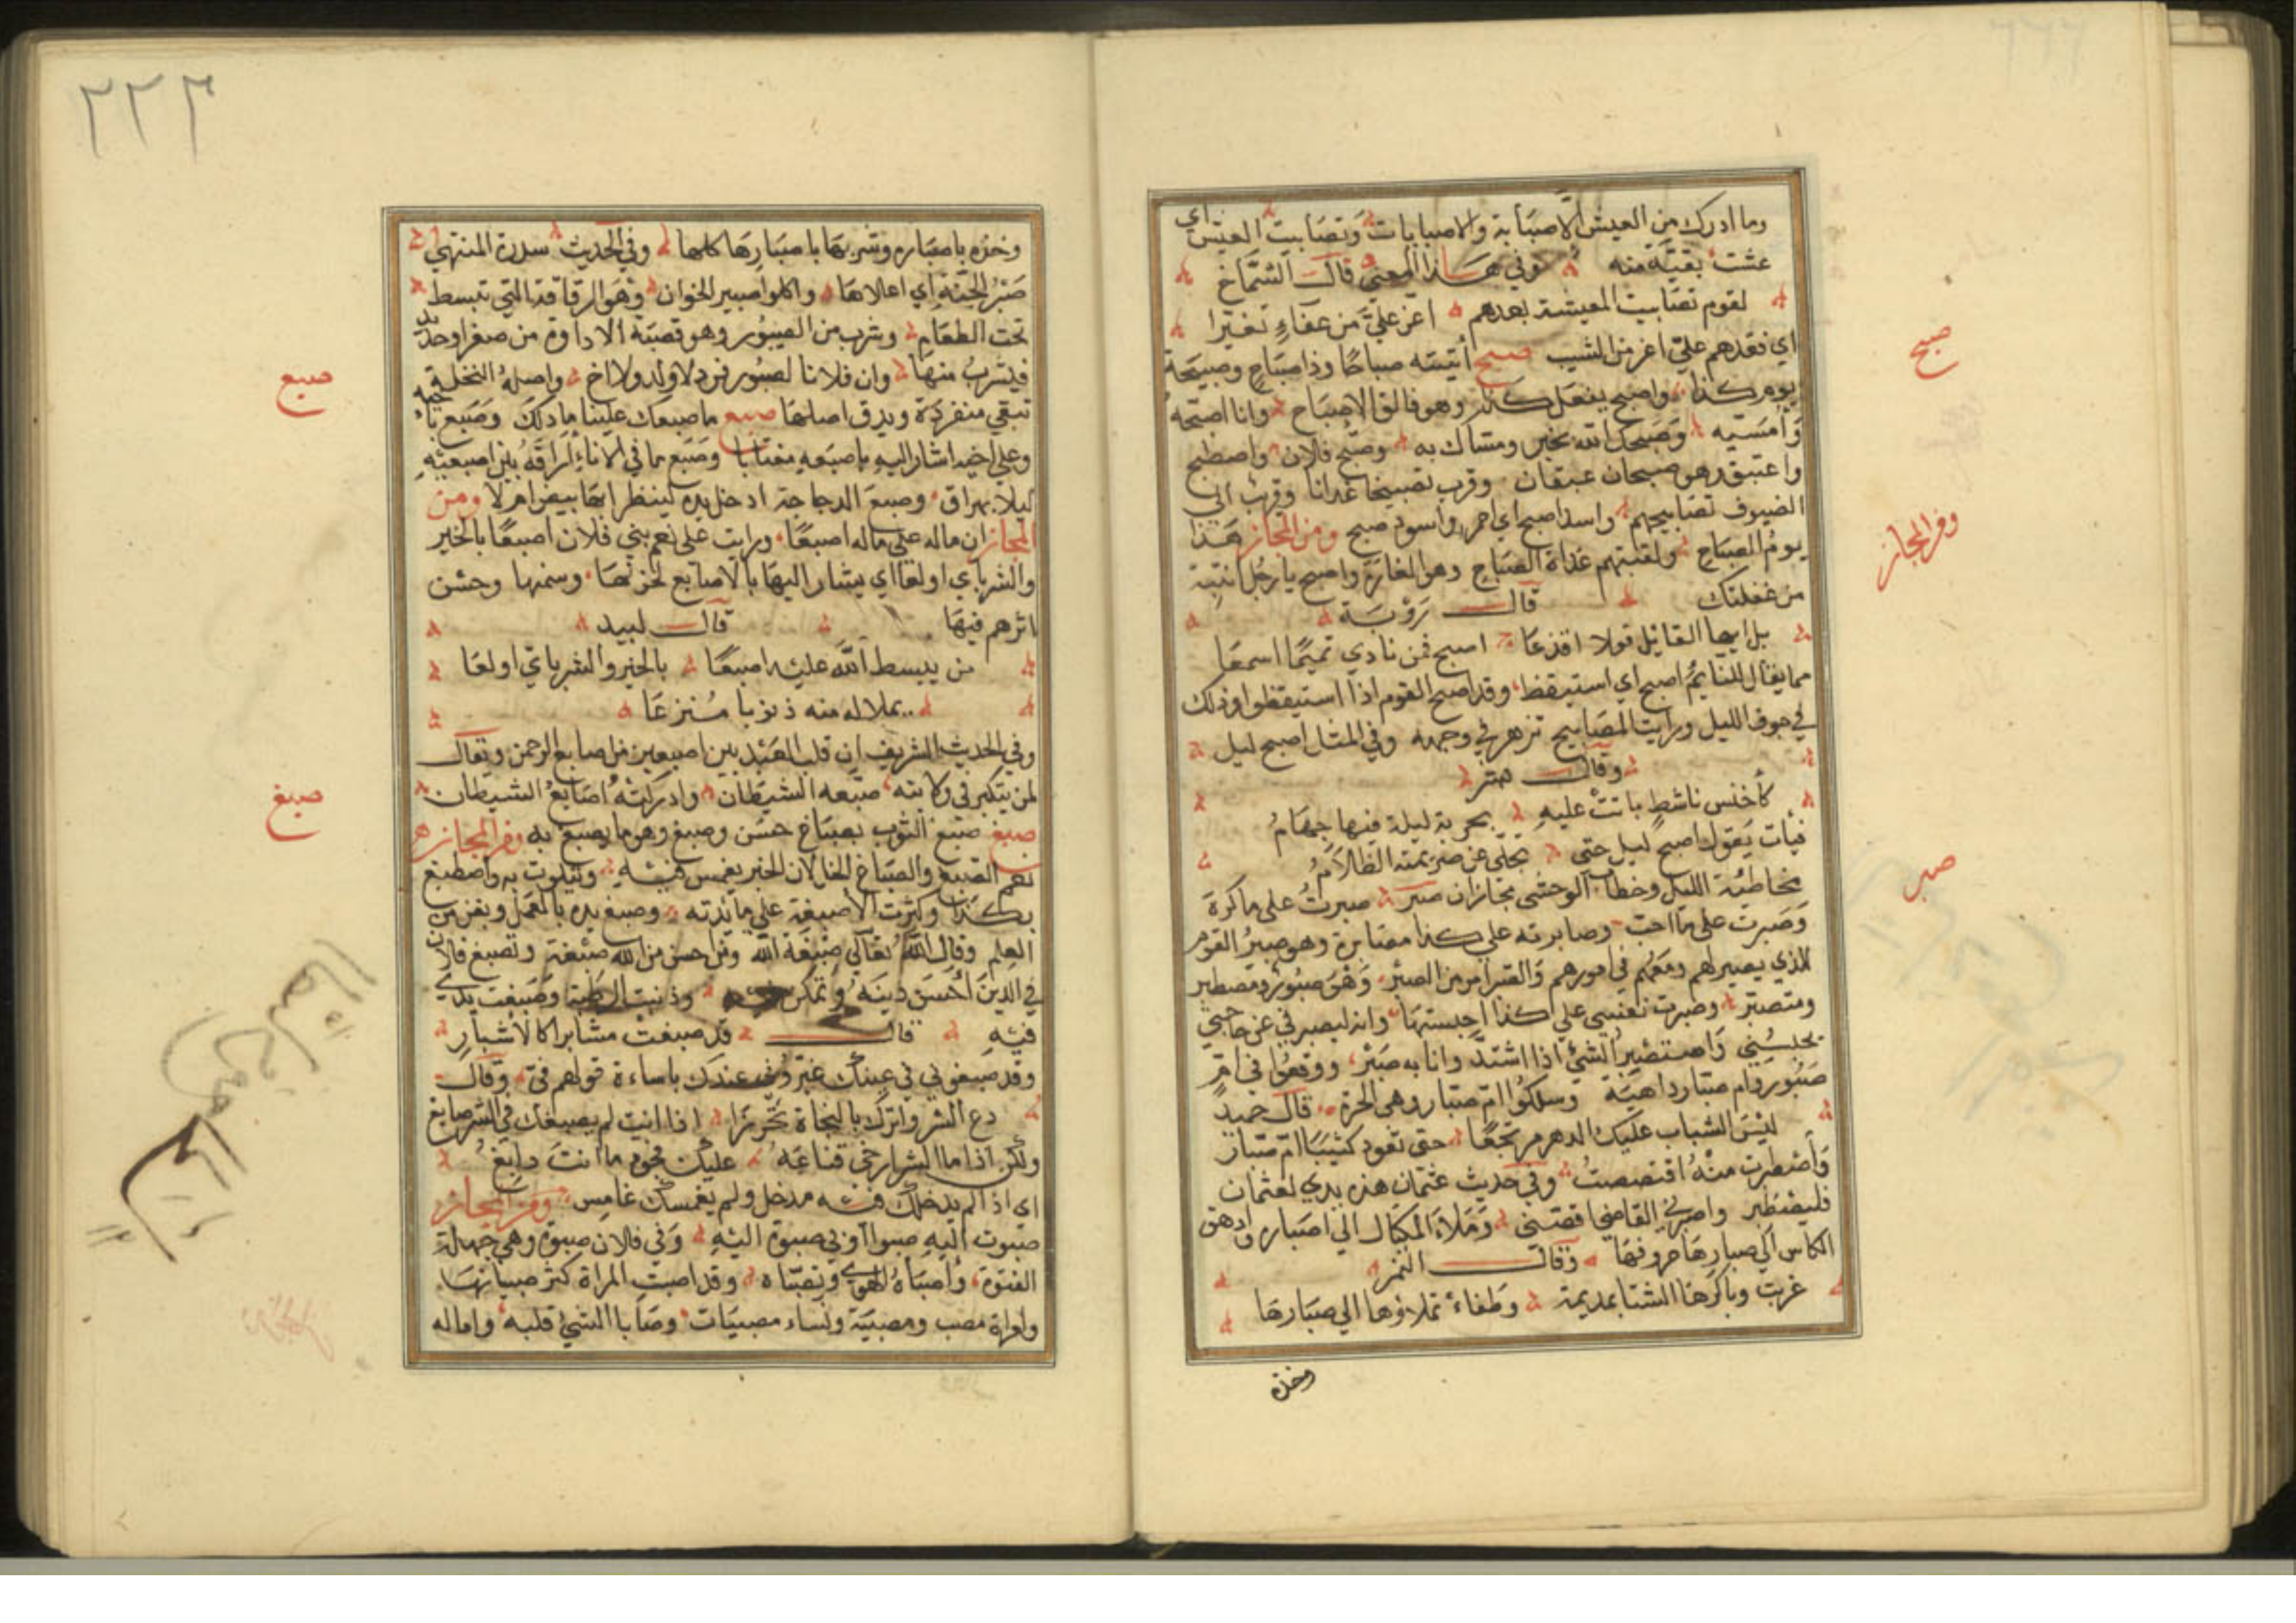 وما ادرك من العيش الا صبابة والا صبابات وتصاببت العيش اي
عشت بقية منه وفي هذا المعنى قال الشماخ
لقوم تصاببت المعيشة بعدهم اعز علي من عفاء تغيرا
اي فقدهم علي اعز من الشيب صبح أتيته صباحا وذا صباح وصبيحة
يوم كذا واصبح يفعل كذا وهو فالق الاصباح وانا اصبحه
وأمسيه وصبحك الله بخير ومساك به وصبح فلان واصطبح
واغتبق وهو صبحان غبقان وقرب تصبيحنا غدانا وقرب الى
الضيوف تصابيحهم واسد اصبح اي احمر واسود صبح ومن المجاز هذا
يوم الصباح ولقيتهم غداة الصباح وهو الغارة واصبح يا رجل انتبه
من غفلتك قال رؤبة
بل ايها القائل قولا اقذعا اصبح فمن نادى تميما اسمعا
مما يقال للنائم اصبح اي استيقظ وقد اصبح القوم اذا استيقظوا وذلك
في جوف الليل ورايت المصابيح تزهر في وجهه وفي المثل اصبح ليل
وقال
كأخنس ناشط باتت عليه بحربة ليلة فيها جهام
فبات يقول اصبح ليل حتى تجلى عن صريمته الظلام
مخاطبة الليل وخطاب الوحشي مجازان صبر صبرت على ما اكره
وصبرت على ما احب وصابرته على كذا مصابرة وهو صبير القوم
للذي يصبر لهم ومعهم في امورهم والصبر امر من الصبر وهو صبور ومصطبر
ومتصبر وصبرت نفسي على كذا احبستها وانه ليصبرني عن حاجتي
يحبسني واستصبر الشئ اذا اشتد وانا به صبير ووقعوا في ام
صبور وام صبار داهية وسلكوا ام صبار وهي الحرة قال حميد
ليس الشباب عليك الدهر مرتجعا حتى تعود كثيبا ام صبار
وأصطبرت منه اقتصصت وفي حديث عثمان هذه يدي لعثمان
فليصطبر واصبرني القاضي اقصني وملا المكيال الى اصباره وادهق
الكاس الى اصبارها حروفها وقال النمر
غربت وباكرها الشتا بمديمة وطفاء تملاؤها الى صبارها
وخذه
صبح
ومن المجاز
صبر
٢٢٣
وخذه باصباره وشربها باصبارها كلها وفي الحديث سدرة المنتهى
صبر الجنة اي اعلاها واكلوا صبير الخوان وهو الرقاقة التي تبسط
تحت الطعام وشرب من الصنبور وهو قصبة الاداوة من صفر او حديد
فيشرب منها وان فلانا لصنبور فرد لا ولد ولا اخ واصله النخلة
تبقى منفردة ويدق اصلها صبع ما صبعك علينا ما دلك وصبع باخيه
وعلى اخيه اشار اليه باصبعه مغتابا وصبع ما في الاناء اراقه بين اصبعيه
ليلا يهراق وصبع الدجاجة ادخل يده لينظر ابها بيض ام لا ومن
المجاز ان ماله على ماله اصبعا ورايت على نعم بني فلان اصبعا بالخير
والشر باي اولعا اي يشار اليها بالاصابع لحسنها وسمنها وحسن
اثرهم فيها قال لبيد
من يبسط الله عليه اصبعا بالخير والشر باي اولعا
يملا له منه ذنوبا مترعا
وفي الحديث الشريف ان قلب العبد بين اصبعين من اصابع الرحمن ويقال
لمن يتكبر في ولايته صبعه الشيطان وادركته اصابع الشيطان
صبغ صبغ الثوب بصباغ حسن وصبغ وهو ما يصبغ به ومن المجاز هو
نعم الصبغ والصباغ الخل لان الخبز يغمس فيه ويتلوث به واصطبغ
بكذا وكثرت الاصبغة على مائدته وصبغ يده بالعمل وبفن من
العلم وقال الله تعالى صبغة الله ومن احسن من الله صبغة وتصبغ فلان
في الدين احسن دينه وتمكن فيه وذنبت الرطبة وصبغت يدي
فيه قال قد صبغت مشافرا كالاشبار
وقد صبغوني في عينك غيروني عندك باساءة قولهم في وقال
دع الشر واترك بالنجاة تحرزا اذا انت لم يصبغك في الشر صابغ
ولكن اذا ما الشر ارخى قناعه عليك فجود ما انت دابغ
اي اذا لم يدخلك فيه مدخل ولم يغمسك غامس ومن المجاز
صبوت اليه صبوا وبي صبوة اليه وفي فلان صبوة وهي جهلة
الفتوة وأصباه الهوى وتصباه وقد اصبت المراة كثر صبيانها
وامراة مصب ومصبية ونساء مصبيات وصابا الشئ قلبه واماله
صبع
صبغ